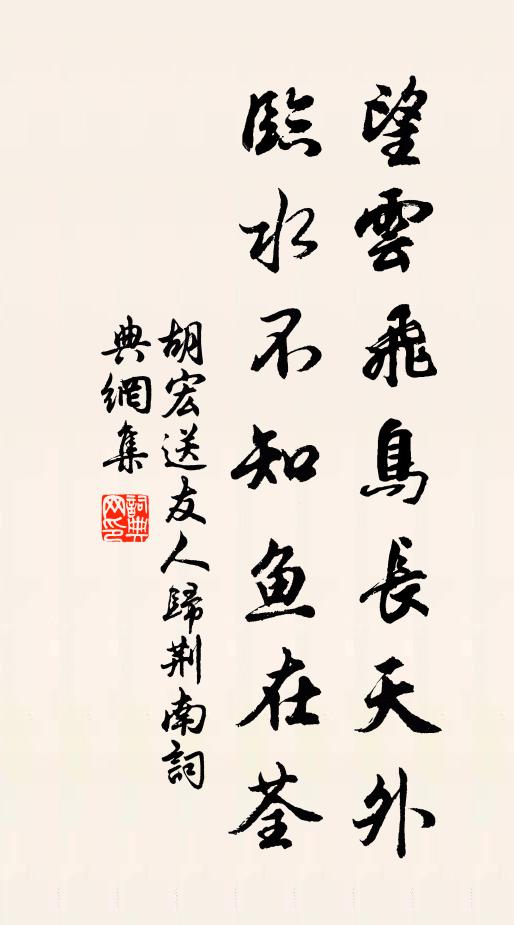 望雲飛鳥長天外
臨水不知鱼在荃
胡宏送友人歸荆南詞
典網集
詞典网印